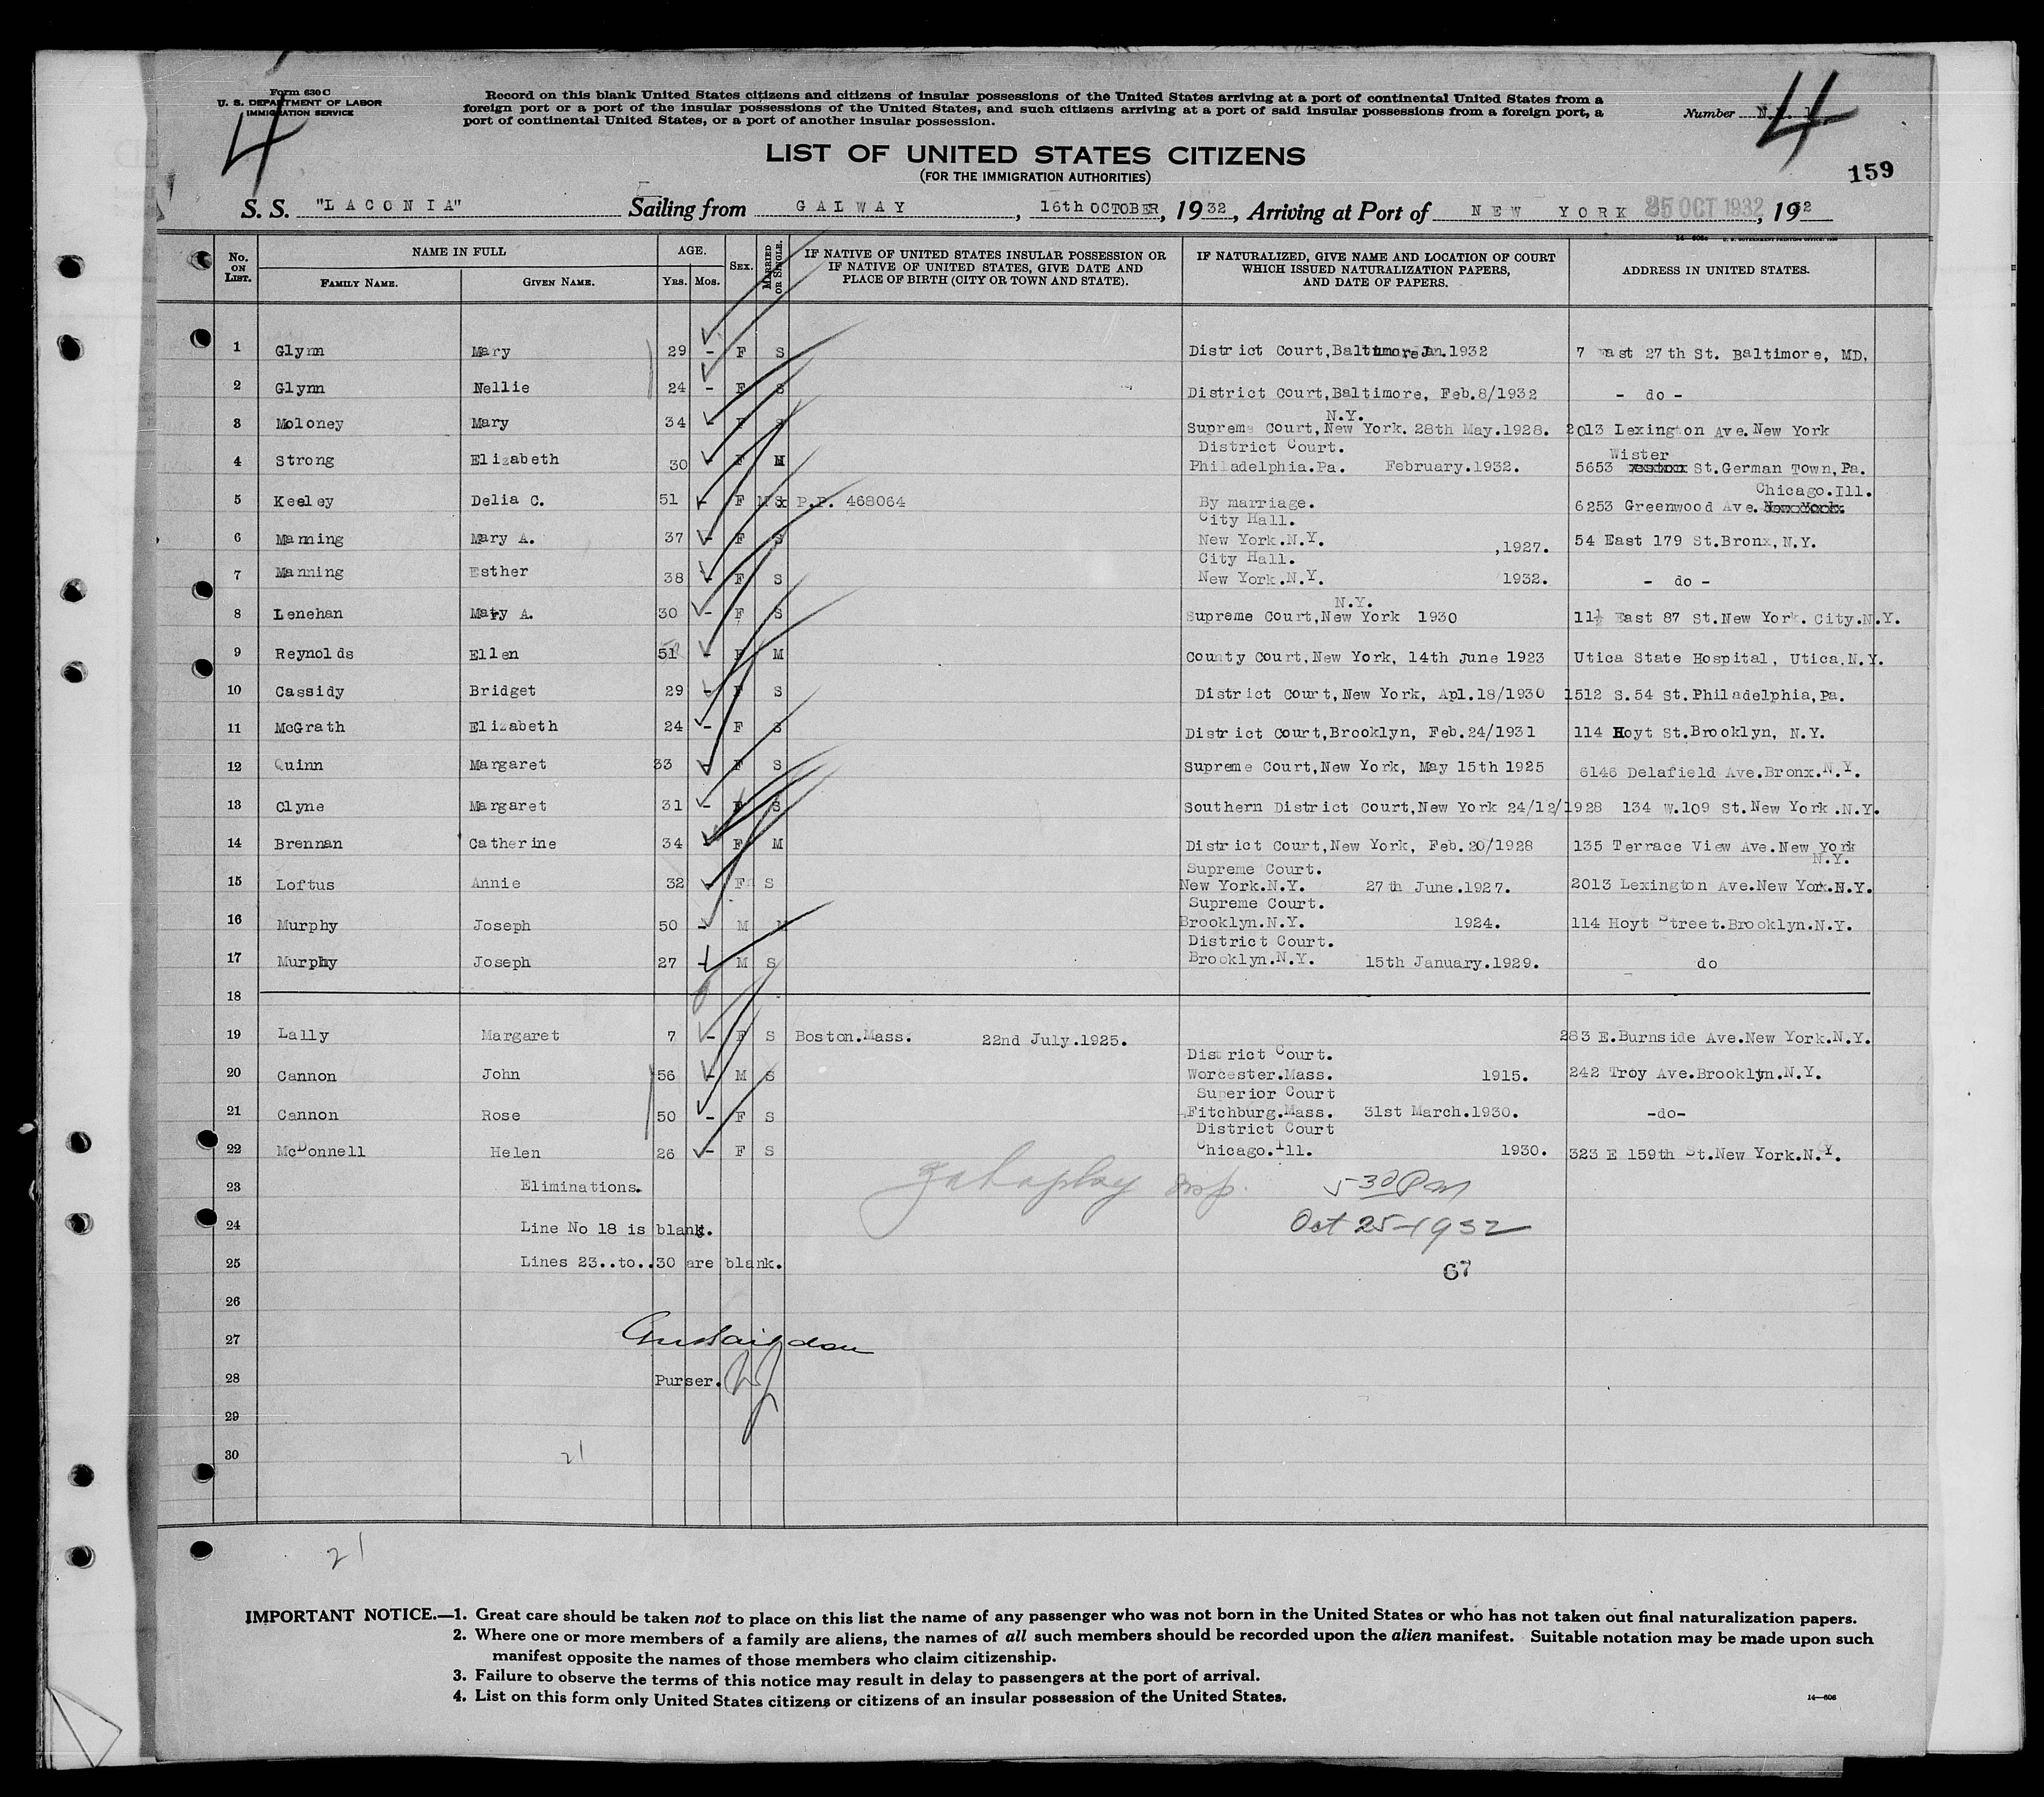 Form 630 C
U. S. DEPARTMENT OF LABOR
IMMIGRATION SERVICE
4
Record on this blank United States citizens and citizens of insular possessions of the United States arriving at a port of continental United States from a
foreign port or a port of the insular possessions of the United States, and such citizens arriving at a port of said insular possessions from a foreign port, a
port of continental United States, or a port of another insular possession.
Number
4
LIST OF UNITED STATES CITIZENS
(FOR THE IMMIGRATION AUTHORITIES)
159
S. S. "LACONIA" Sailing from GALWAY, 16th OCTOBER, 1932, Arriving at Port of NEW YORK 25 OCT 1932, 1932
No. ON LIST. NAME IN FULL FAMILY NAME. GIVEN NAME. AGE. YRS. MOS. SEX. MARRIED OR SINGLE. IF NATIVE OF UNITED STATES INSULAR POSSESSION OR IF NATIVE OF UNITED STATES, GIVE DATE AND PLACE OF BIRTH (CITY OR TOWN AND STATE). IF NATURALIZED, GIVE NAME AND LOCATION OF COURT WHICH ISSUED NATURALIZATION PAPERS, AND DATE OF PAPERS. ADDRESS IN UNITED STATES.
1 Glynn Mary 29 - F S District Court, Baltimore Jan. 1932 7 East 27th St. Baltimore, MD.
2 Glynn Nellie 24 - F S District Court, Baltimore, Feb.8/1932 - do -
N.Y.
3 Moloney Mary 34 - F S Supreme Court, New York. 28th May.1928. 2013 Lexington Ave. New York
District Court. Wister
4 Strong Elizabeth 30 - F M Philadelphia.Pa. February.1932. 5653 St.German Town, Pa.
Chicago.Ill.
5 Keeley Delia C. 51 - F M P.P. 468064 By marriage. 6253 Greenwood Ave. New York.
City Hall.
6 Manning Mary A. 37 - F S New York.N.Y. ,1927. 54 East 179 St.Bronx, N.Y.
City Hall.
7 Manning Esther 38 - F S New York.N.Y. 1932. - do -
N.Y.
8 Lenehan Mary A. 30 - F S Supreme Court, New York 1930 11½ East 87 St.New York. City.N.Y.
9 Reynolds Ellen 51 - F M County Court, New York, 14th June 1923 Utica State Hospital, Utica, N.Y.
10 Cassidy Bridget 29 - F S District Court, New York, Apl.18/1930 1512 S.54 St.Philadelphia, Pa.
11 McGrath Elizabeth 24 - F S District Court, Brooklyn, Feb.24/1931 114 Hoyt St.Brooklyn, N.Y.
12 Quinn Margaret 33 - F S Supreme Court, New York, May 15th 1925 6146 Delafield Ave.Bronx.N.Y.
13 Clyne Margaret 31 - F S Southern District Court, New York 24/12/1928 134 W.109 St.New York.N.Y.
14 Brennan Catherine 34 - F M District Court, New York, Feb.20/1928 135 Terrace View Ave.New York
Supreme Court. N.Y.
15 Loftus Annie 32 - F S New York.N.Y. 27th June.1927. 2013 Lexington Ave.New York.N.Y.
Supreme Court.
16 Murphy Joseph 50 - M M Brooklyn.N.Y. 1924. 114 Hoyt Street.Brooklyn.N.Y.
District Court.
17 Murphy Joseph 27 - M S Brooklyn.N.Y. 15th January.1929. do
18
19 Lally Margaret 7 - F S Boston.Mass. 22nd July.1925. 283 E.Burnside Ave.New York.N.Y.
District Court.
20 Cannon John 56 - M S Worcester.Mass. 1915. 242 Troy Ave.Brooklyn.N.Y.
Superior Court
21 Cannon Rose 50 - F S Fitchburg.Mass. 31st March.1930. -do-
District Court
22 McDonnell Helen 26 - F S Chicago.Ill. 1930. 323 E 159th St.New York.N.Y.
23 Eliminations. 5 30 Pm
24 Line No 18 is blank. Oct 25-1932
25 Lines 23..to..30 are blank. 67
26
27
28 Purser.
29
30 21
21
IMPORTANT NOTICE.—1. Great care should be taken not to place on this list the name of any passenger who was not born in the United States or who has not taken out final naturalization papers.
2. Where one or more members of a family are aliens, the names of all such members should be recorded upon the alien manifest. Suitable notation may be made upon such
manifest opposite the names of those members who claim citizenship.
3. Failure to observe the terms of this notice may result in delay to passengers at the port of arrival.
4. List on this form only United States citizens or citizens of an insular possession of the United States.
14—606